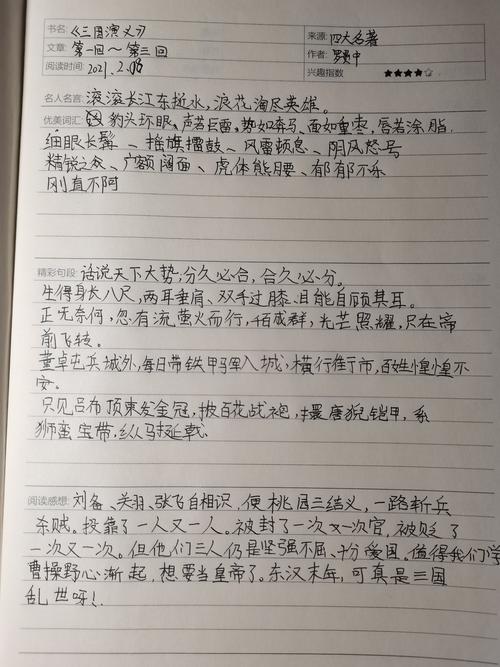 书名:《三国演义》
来源:四大名著
文章:第一回~第三回
作者:罗贯中
阅读时间:2021.2.
兴趣指数 ★★★★☆
名人名言:滚滚长江东逝水,浪花淘尽英雄。
优美词汇:豹头环眼、声若巨雷、势如奔马、面如重枣,唇若涂脂.
细眼长髯、摇旗擂鼓、风雷顿息、阴风怒号
精锐之众、广额阔面、虎体熊腰、郁郁不乐
刚直不阿
精彩句段:话说天下大势,分久必合,合久必分。
生得身长八尺,两耳垂肩、双手过膝、目能自顾其耳。
正无奈何,忽有流萤火而行,千百成群,光芒照耀,只在帝
前飞转。
董卓屯兵城外,每日带铁甲军入城,横行街市,百姓惶惶不
安。
只见吕布顶束发金冠,披百花战袍,擐唐猊铠甲,系
狮蛮宝带,纵马挺戟
阅读感想:刘备、关羽、张飞自相识,便桃园三结义,一路斩兵
杀贼。投靠了一人又一人。被封了一次又一次官,被贬了
一次又一次。但他们三人仍是坚强不屈、十分爱国。值得我们学
曹操野心渐起,想要当皇帝了。东汉末年,可真是三国
乱世呀!